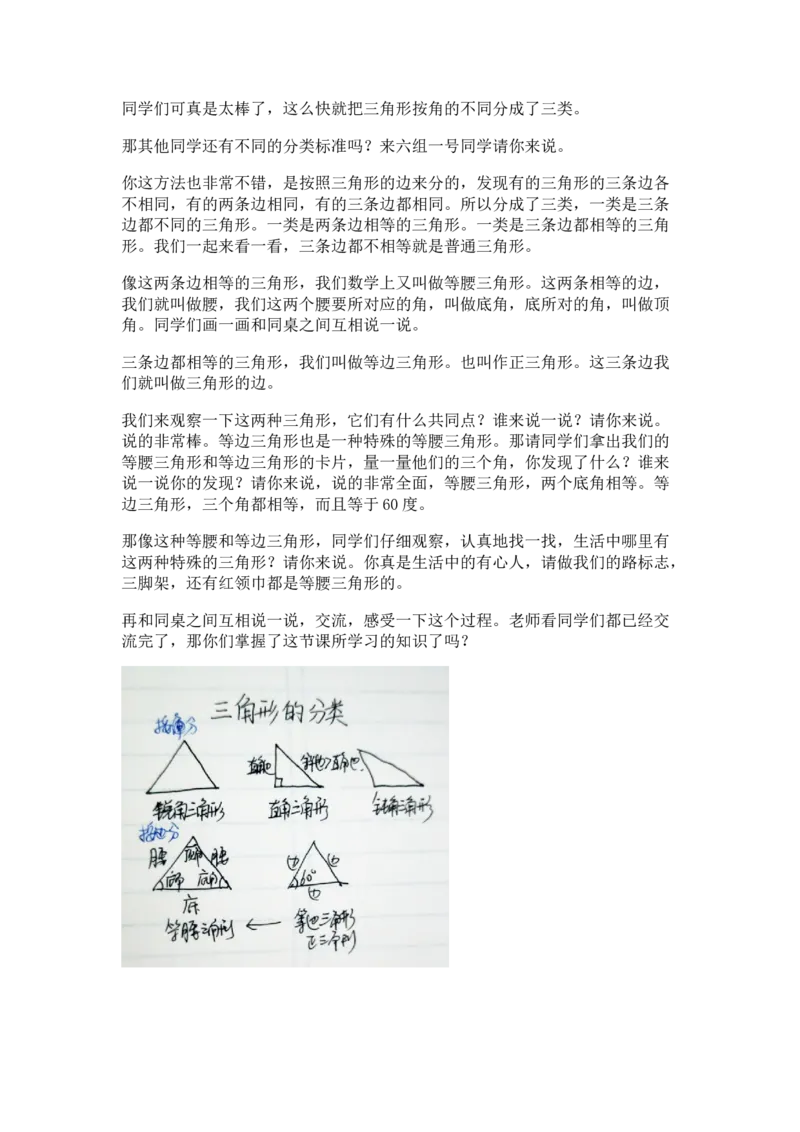 同学们可真是太棒了，这么快就把三角形按角的不同分成了三类。
那其他同学还有不同的分类标准吗？来六组一号同学请你来说。
你这方法也非常不错，是按照三角形的边来分的，发现有的三角形的三条边各
不相同，有的两条边相同，有的三条边都相同。所以分成了三类，一类是三条
边都不同的三角形。一类是两条边相等的三角形。一类是三条边都相等的三角
形。我们一起来看一看，三条边都不相等就是普通三角形。
像这两条边相等的三角形，我们数学上又叫做等腰三角形。这两条相等的边，
我们就叫做腰，我们这两个腰要所对应的角，叫做底角，底所对的角，叫做顶
角。同学们画一画和同桌之间互相说一说。
三条边都相等的三角形，我们叫做等边三角形。也叫作正三角形。这三条边我
们就叫做三角形的边。
我们来观察一下这两种三角形，它们有什么共同点？谁来说一说？请你来说。
说的非常棒。等边三角形也是一种特殊的等腰三角形。那请同学们拿出我们的
等腰三角形和等边三角形的卡片，量一量他们的三个角，你发现了什么？谁来
说一说你的发现？请你来说，说的非常全面，等腰三角形，两个底角相等。等
边三角形，三个角都相等，而且等于 60 度。
那像这种等腰和等边三角形，同学们仔细观察，认真地找一找，生活中哪里有
这两种特殊的三角形？请你来说。你真是生活中的有心人，请做我们的路标志，
三脚架，还有红领巾都是等腰三角形的。
再和同桌之间互相说一说，交流，感受一下这个过程。老师看同学们都已经交
流完了，那你们掌握了这节课所学习的知识了吗？
三角形的分类
按角分
直角边 斜边>直角边
锐角三角形 直角三角形 钝角三角形
按边分
腰 腰 边 边
底角 底角 60° 边
底
等腰三角形 ← 等边三角形
正三角形